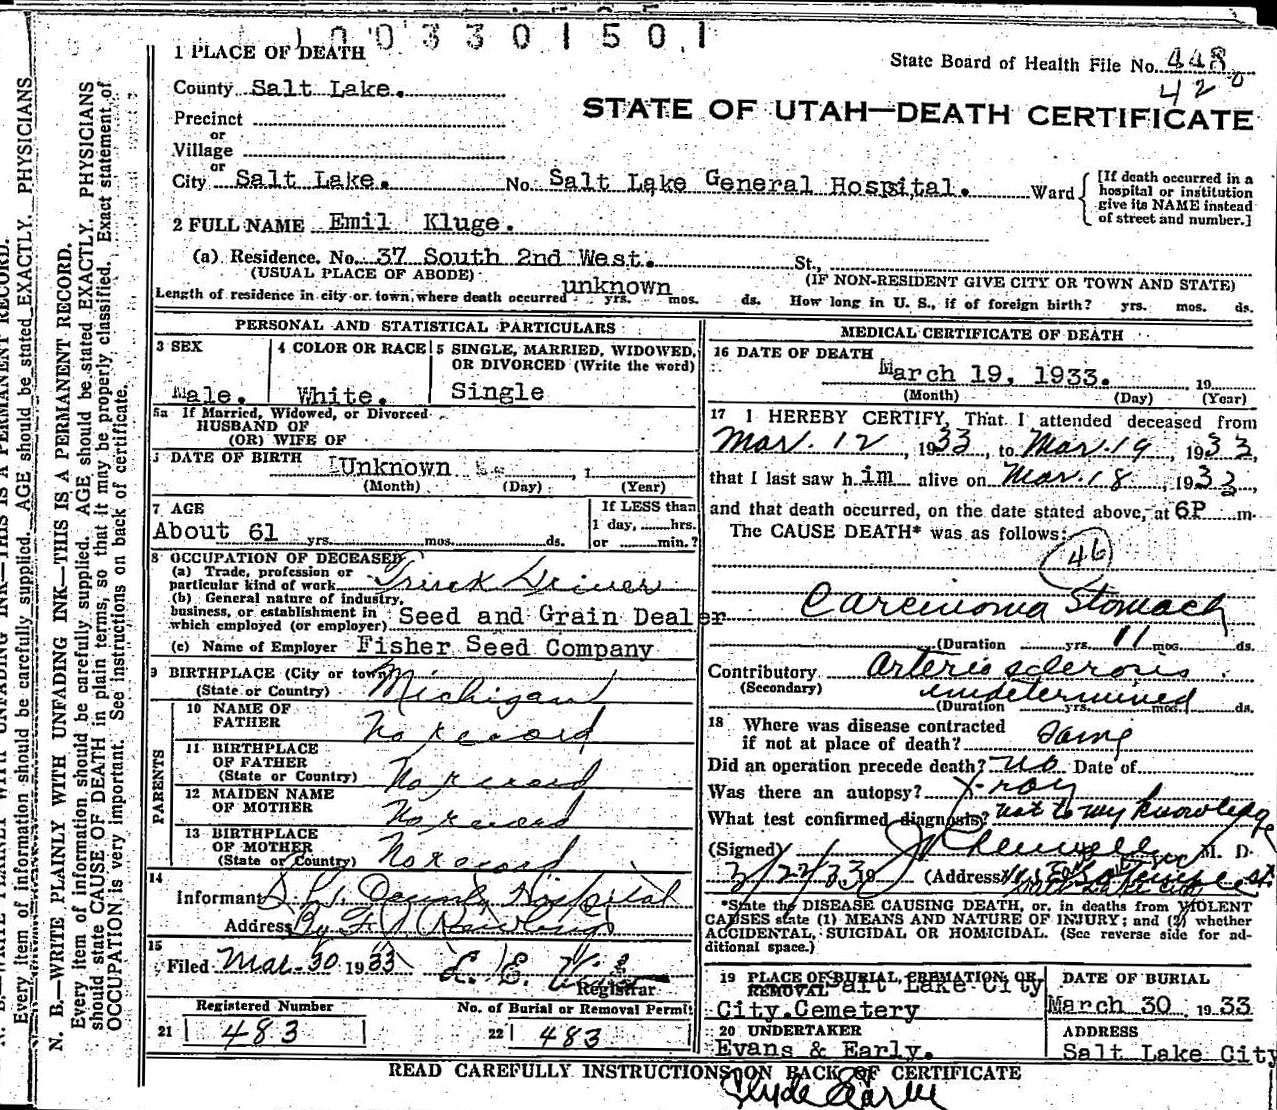 1003301501
1 PLACE OF DEATH
State Board of Health File No. 448
420
County Salt Lake.
STATE OF UTAH—DEATH CERTIFICATE
Precinct
or
Village
or
City Salt Lake. No. Salt Lake General Hospital. Ward
[If death occurred in a
hospital or institution
give its NAME instead
of street and number.]
2 FULL NAME Emil Kluge.
(a) Residence. No. 37 South 2nd West. St.,
(USUAL PLACE OF ABODE) (IF NON-RESIDENT GIVE CITY OR TOWN AND STATE)
Length of residence in city or town where death occurred unknown yrs. mos. ds. How long in U. S., if of foreign birth? yrs. mos. ds.
PERSONAL AND STATISTICAL PARTICULARS
3 SEX
Male.
4 COLOR OR RACE
White.
5 SINGLE, MARRIED, WIDOWED,
OR DIVORCED (Write the word)
Single
5a If Married, Widowed, or Divorced
HUSBAND OF
(OR) WIFE OF
DATE OF BIRTH Unknown , 1
(Month) (Day) (Year)
7 AGE
About 61 yrs. mos. ds.
If LESS than
1 day, hrs.
or min.?
8 OCCUPATION OF DECEASED
(a) Trade, profession or
particular kind of work Truck Driver
(b) General nature of industry,
business, or establishment in
which employed (or employer) Seed and Grain Dealer
(c) Name of Employer Fisher Seed Company
9 BIRTHPLACE (City or town)
(State or Country) Michigan
PARENTS
10 NAME OF
FATHER No record
11 BIRTHPLACE
OF FATHER
(State or Country) No record
12 MAIDEN NAME
OF MOTHER No record
13 BIRTHPLACE
OF MOTHER
(State or Country) No record
14
Informant S. L. County Hospital
Address By
15
Filed Mar. 30 1933 L. E.
Registrar
Registered Number
21 483
No. of Burial or Removal Permit
22 483
MEDICAL CERTIFICATE OF DEATH
16 DATE OF DEATH
March 19, 1933. , 19
(Month) (Day) (Year)
17 I HEREBY CERTIFY, That I attended deceased from
Mar. 12, 1933, to Mar. 19, 1933,
that I last saw him alive on Mar. 18, 1933
and that death occurred, on the date stated above, at 6P m.
The CAUSE DEATH* was as follows:
46
Carcinoma Stomach
(Duration yrs. 11 mos. ds.
Contributory Arterio sclerosis
(Secondary) undetermined
(Duration yrs. mos. ds.
18 Where was disease contracted
if not at place of death? Same
Did an operation precede death? no Date of
Was there an autopsy? X-ray
What test confirmed diagnosis? not to my knowledge
(Signed) M. D.
3/22/33 19 (Address
*State the DISEASE CAUSING DEATH, or, in deaths from VIOLENT
CAUSES state (1) MEANS AND NATURE OF INJURY; and (2) whether
ACCIDENTAL, SUICIDAL OR HOMICIDAL. (See reverse side for ad-
ditional space.)
19 PLACE OF BURIAL, CREMATION, OR
REMOVAL Salt Lake City
City Cemetery
DATE OF BURIAL
March 30, 1933
20 UNDERTAKER
Evans & Early.
ADDRESS
Salt Lake City
READ CAREFULLY INSTRUCTIONS ON BACK OF CERTIFICATE
Clyde Early
N. B.—WRITE PLAINLY WITH UNFADING INK—THIS IS A PERMANENT RECORD.
Every item of information should be carefully supplied. AGE should be stated EXACTLY. PHYSICIANS
should state CAUSE OF DEATH in plain terms, so that it may be properly classified. Exact statement of
OCCUPATION is very important. See instructions on back of certificate.
N. B.—WRITE PLAINLY WITH UNFADING INK—THIS IS A PERMANENT RECORD.
Every item of information should be carefully supplied. AGE should be stated EXACTLY. PHYSICIANS